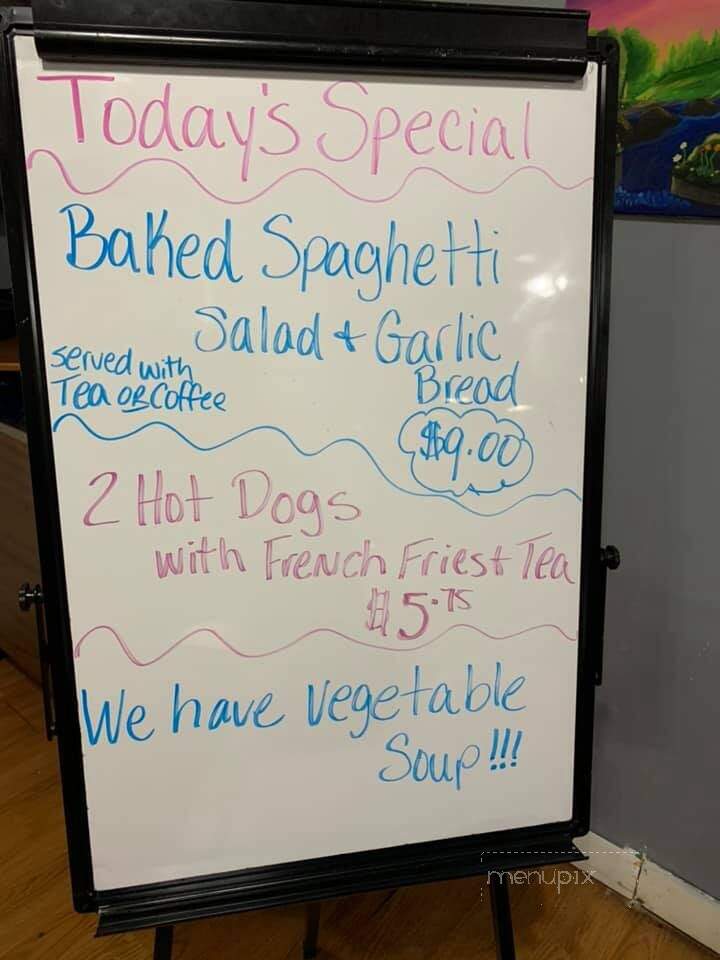 Today's Special
Baked Spaghetti
Salad + Garlic
Bread
served with
Tea or Coffee
$9.00
2 Hot Dogs
with French Fries + Tea
$5.75
We have vegetable
Soup!!!
menupix